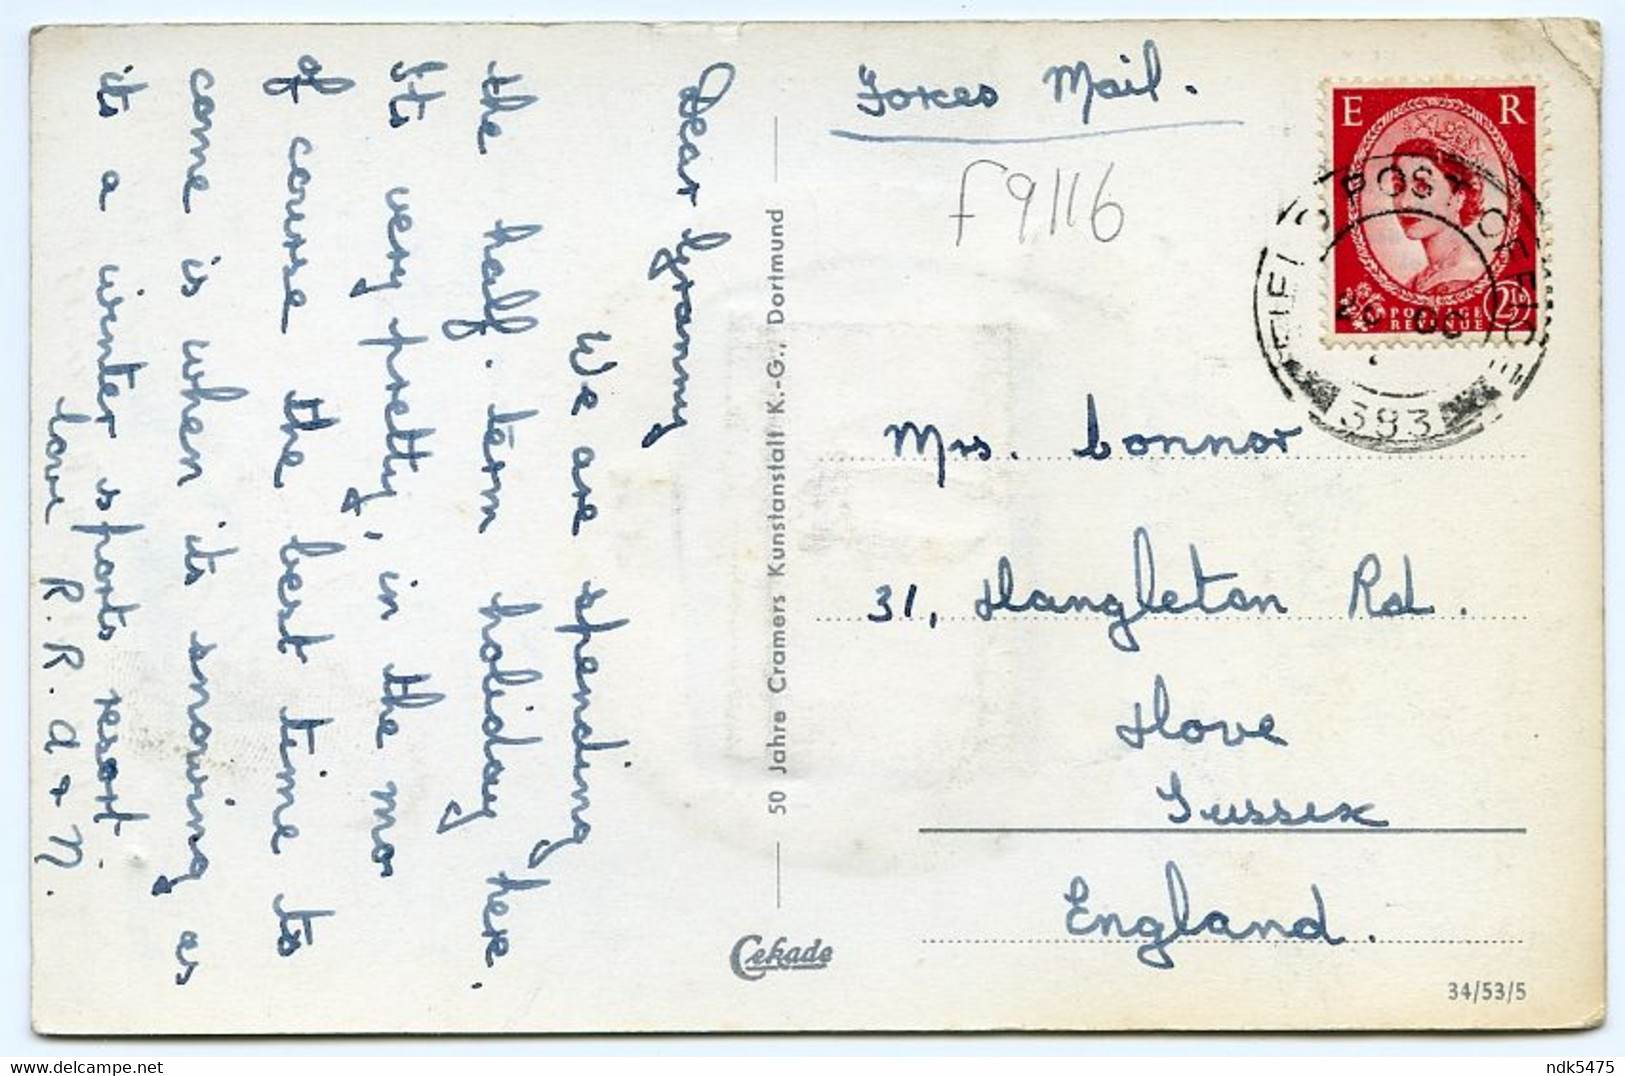 Dear Granny
We are spending
the half. term holiday here.
Its very pretty, in the mo
of course the best time to
come is when its snowing as
its a winter sports resort.
love R. R. a + N.
50 Jahre Cramers Kunstanstalt K.-G., Dortmund
Cekade
Forces Mail.
F9116
E R
POSTAGE
REVENUE
2½D
FIELD POST OFFICE
OC
383
Mrs. Connor
31, Hangleton Rd.
Hove
Sussex
England.
34/53/5
ndk5475